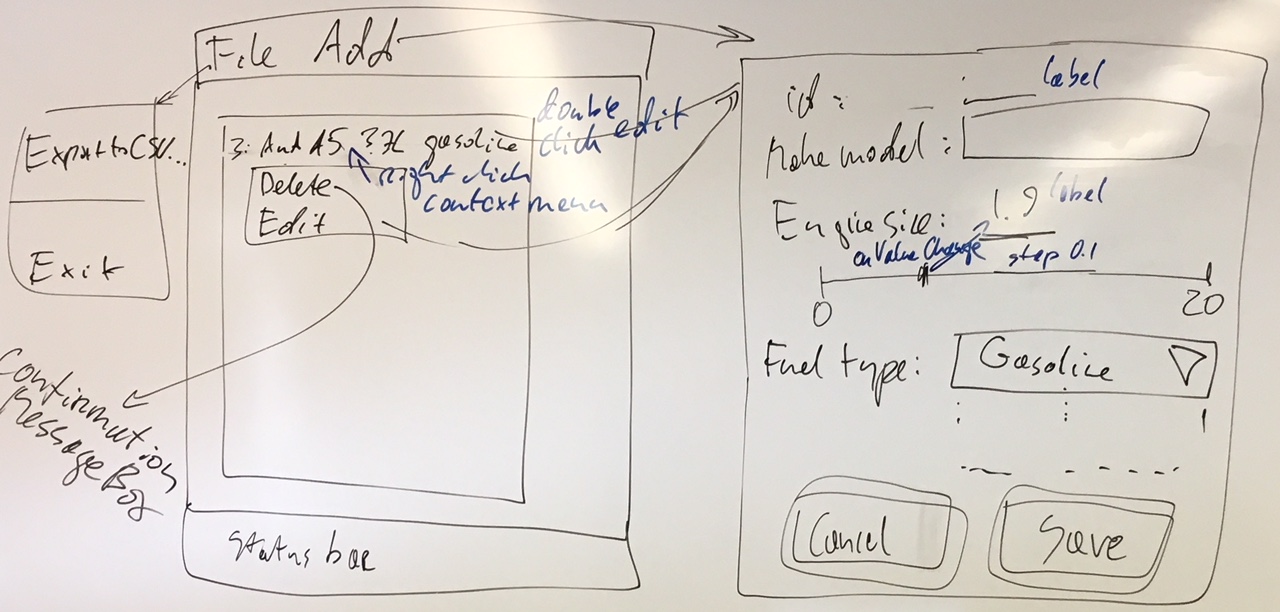 File Add
Export to CSV...
Exit
3: Audi A5 3.2L gasoline
double
click edit
right click
context menu
Delete
Edit
Confirmation
Message Box
Status bar
id: - label
Make model:
Engine Size: 1.9 label
on Value Change step 0.1
0 20
Fuel type: Gasoline
Cancel Save